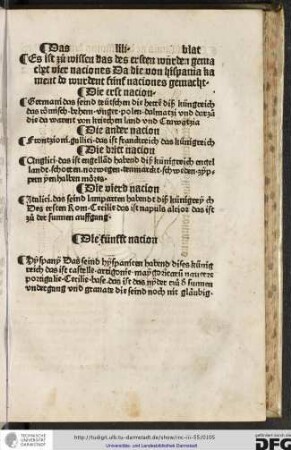 Das iiii· blat
Es ist zů wissen das des ersten würden gema
chet vier naciones Da die von hispania ka
ment do wurdent fünf naciones gemacht·
Die erst nacion·
Germani das seind teütschen die hettē diß küngreich
das römisch·behem·vnger·polen·dalmatzi vnd
die da waren von kriechen land vnd
Die ander nacion
gallici·das ist franckreich das künigreich
Die dritt nacion
Anglici·das ist engellād habend diß künigreich engel
landt·schotten·norwegen·tennmarckt·schweden·zyp
pern yenhalben mōres·
Die vierd nacion
Italici·das seind lamparten habendt diß künigreych
Des ersten Rom·Cecilie das ist napuls das ist
zů der sunnen auffgang·
Die fünfft nacion
Hyspany Das seind hyspanien habend dises künig
reich das ist castelle·
portigalie·Cecilie· das ist das nyder sunnen
vndergang vnd granate die seind noch nit gläubig·
TECHNISCHE UNIVERSITÄT DARMSTADT
http://tudigit.ulb.tu-darmstadt.de/show/inc-iii-55/0105
Universitäts- und Landesbibliothek Darmstadt
gefördert durch die
DFG